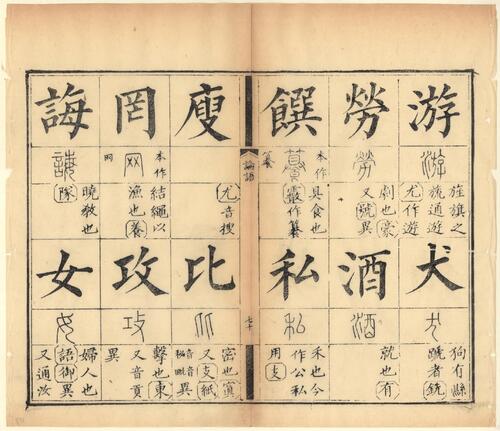 游
游
旌旗之
旒通遊
尤作遊
勞
勞
劇也豪
又號異
饌
籑
本作
籑
具食也
霰作籑
犬
犬
狗有縣
蹏者銑
酒
酒
就也有
私
私
禾也今
作公私
用支
論語
七十
廋
尤音搜
罔
本作
网
网
結繩以
漁也養
誨
誨
曉教也
隊
比
比
密也寘
又支紙
攻
攻
擊也東
又音貢
異
女
女
婦人也
語御異
又通汝